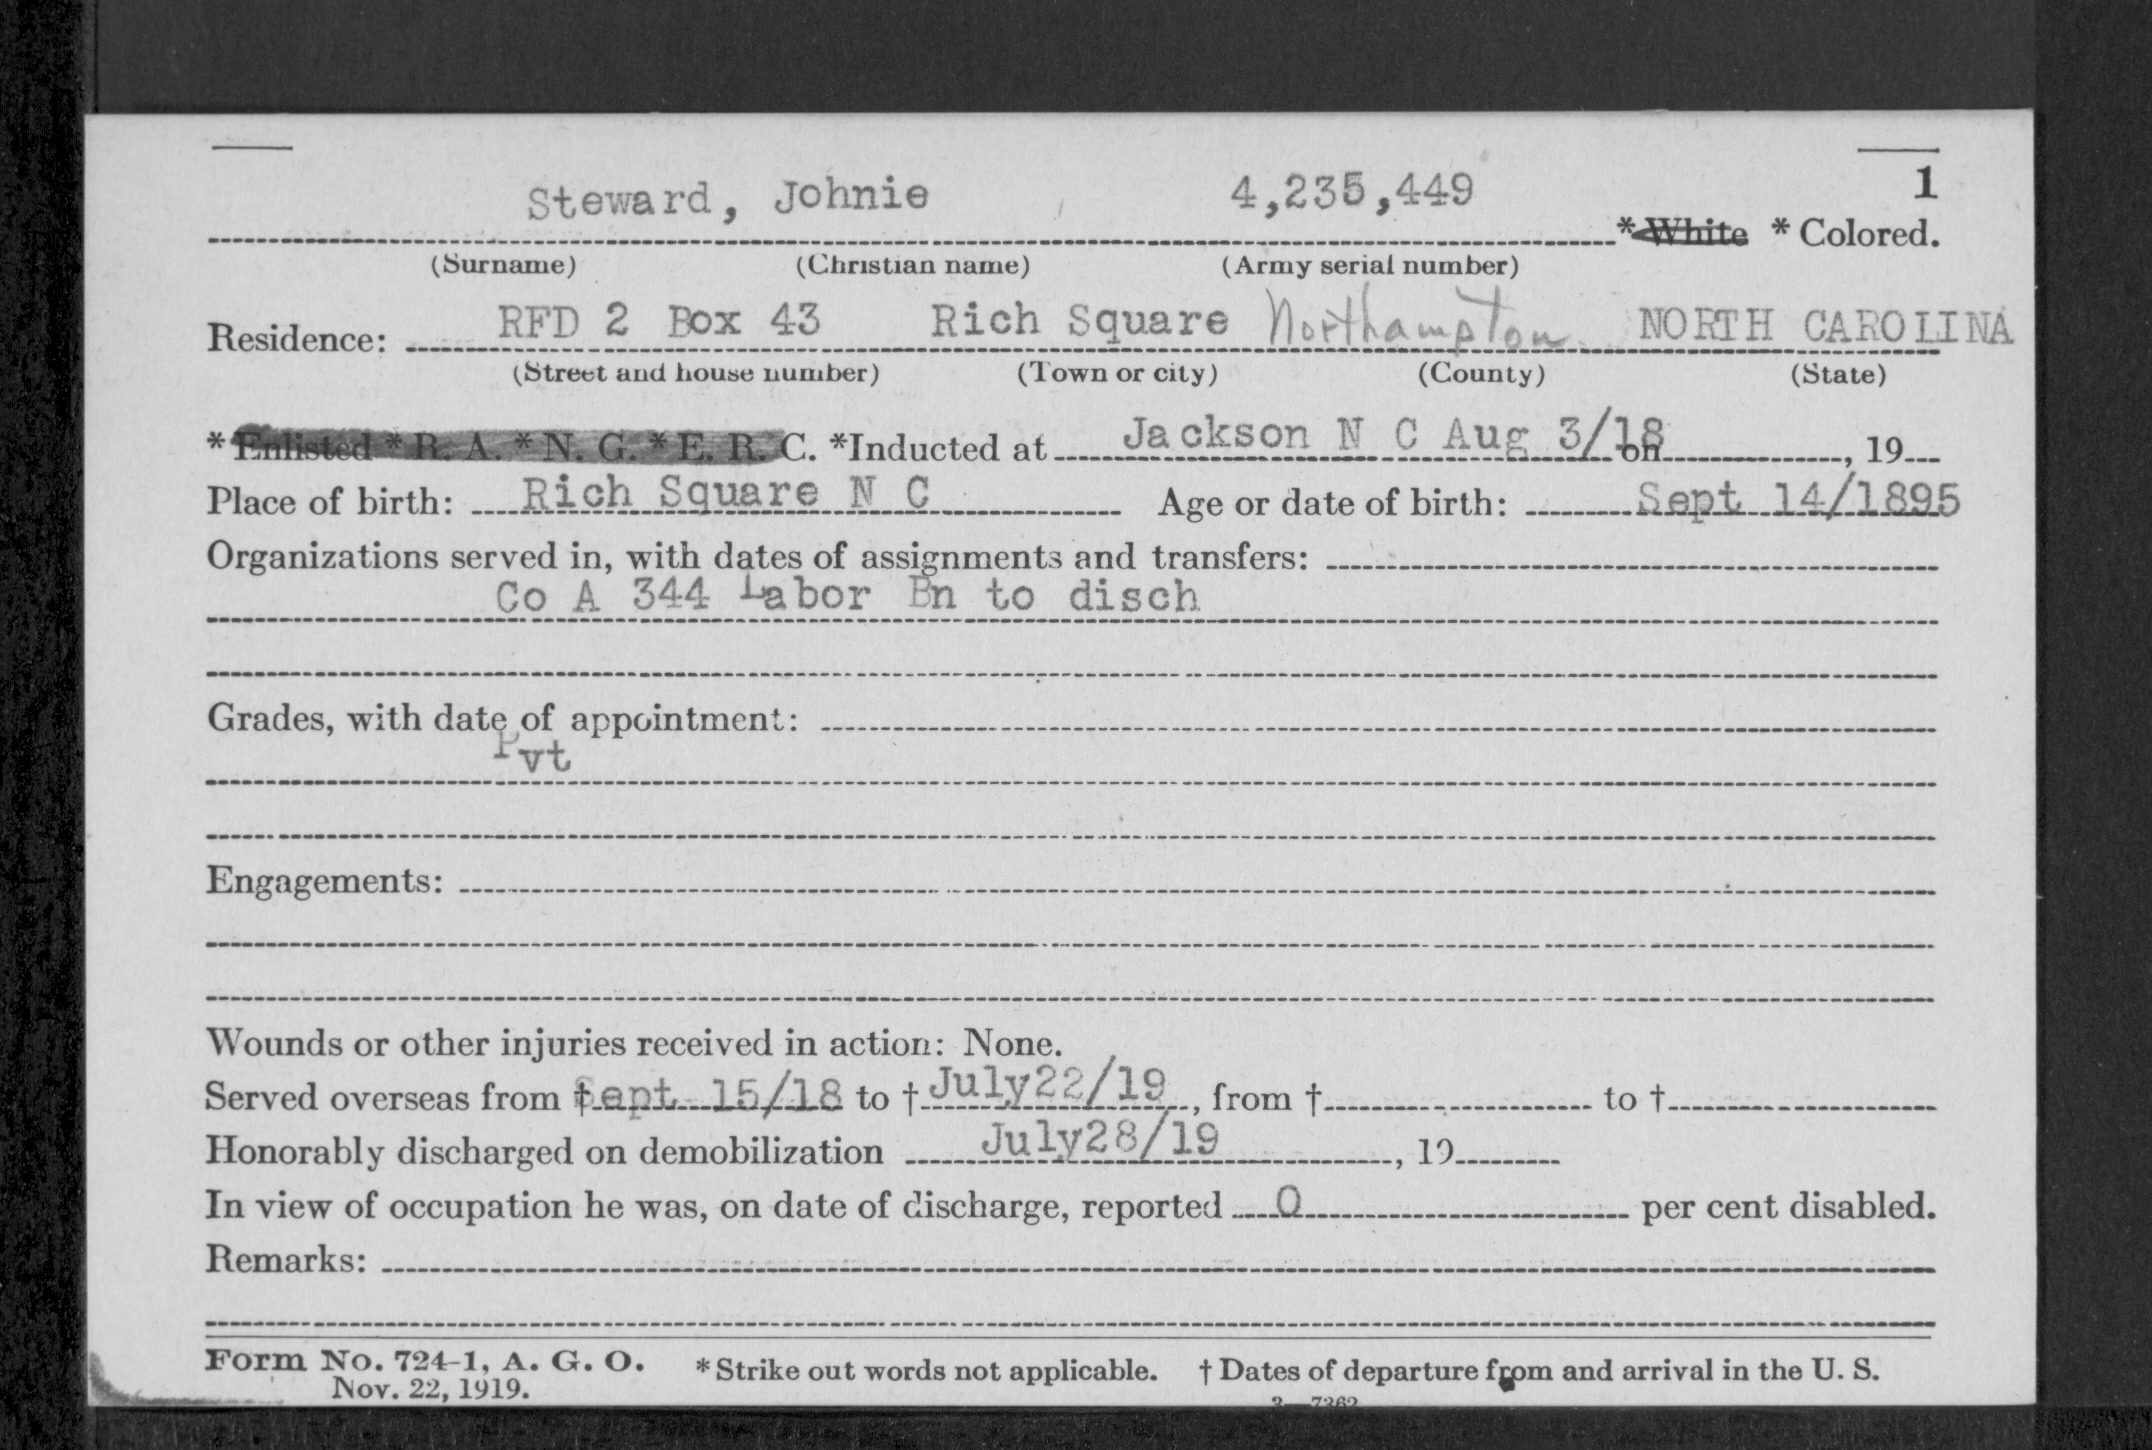 1
Steward, Johnie 4,235,449 *White * Colored.
(Surname) (Christian name) (Army serial number)
Residence: RFD 2 Box 43 Rich Square Northampton NORTH CAROLINA
(Street and house number) (Town or city) (County) (State)
* Enlisted * R. A. * N. G. * E. R. C. *Inducted at Jackson N C Aug 3/18 on , 19
Place of birth: Rich Square N C Age or date of birth: Sept 14/1895
Organizations served in, with dates of assignments and transfers:
Co A 344 Labor Bn to disch
Grades, with date of appointment:
Pvt
Engagements:
Wounds or other injuries received in action: None.
Served overseas from † Sept 15/18 to † July22/19, from † to †
Honorably discharged on demobilization July28/19, 19
In view of occupation he was, on date of discharge, reported 0 per cent disabled.
Remarks:
Form No. 724-1, A. G. O. * Strike out words not applicable. † Dates of departure from and arrival in the U. S.
Nov. 22, 1919.
3—7362